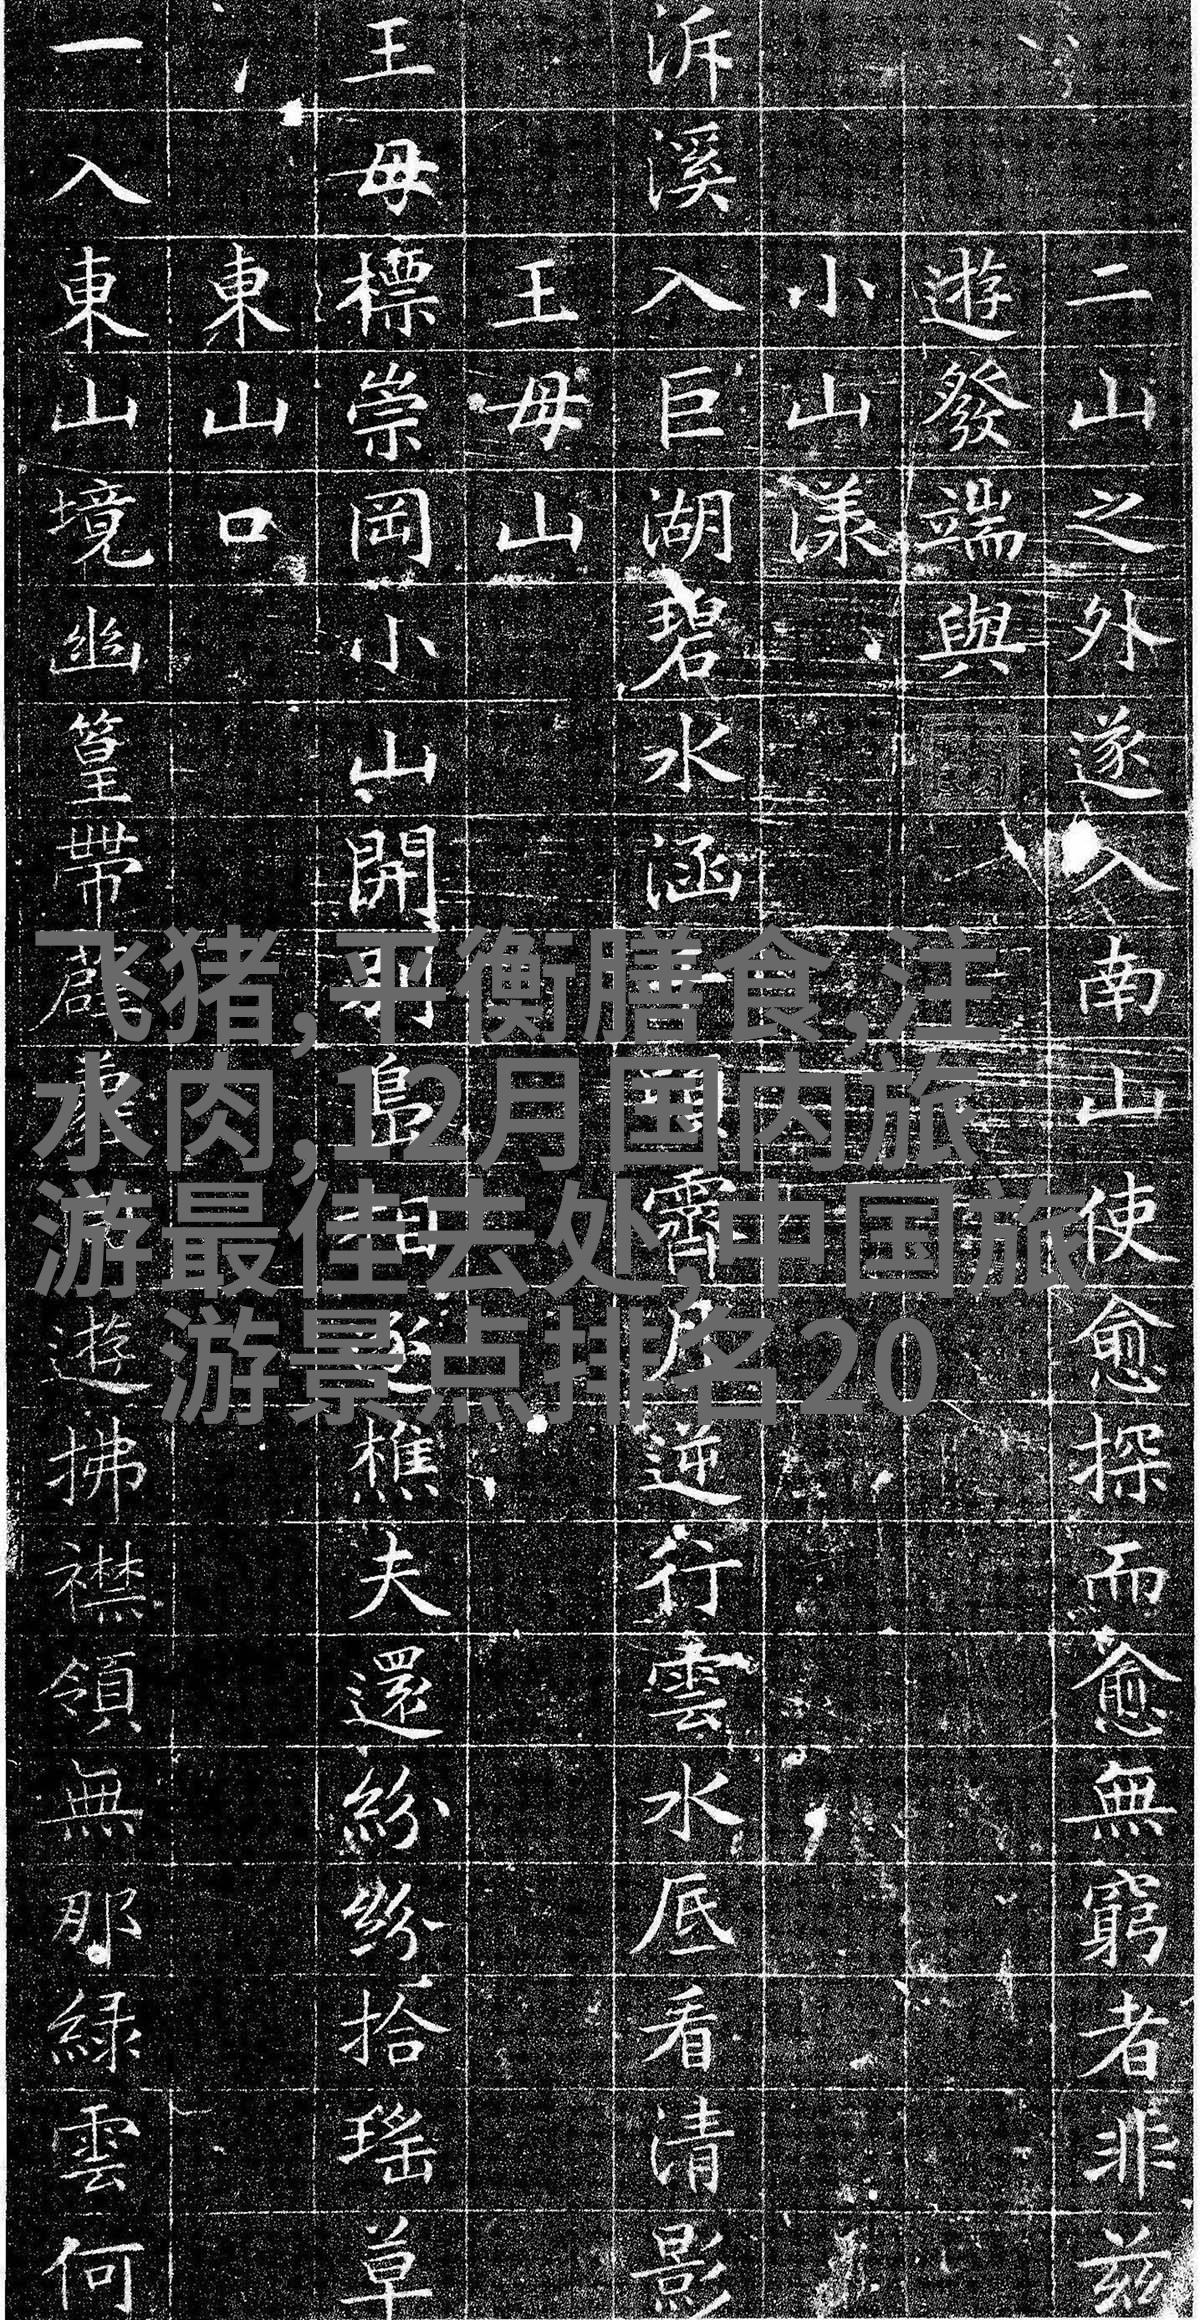 二山之外遂入南山使愈探而愈無窮者非兹
遊發端與
小山漾
泝溪入巨湖碧水涵頃霽月逆行雲水底看清影
王母山
王母標崇岡小山開別島相逐樵夫還紛紛拾瑤草
東山口
一入東山境幽篁帶遊拂襟領無那緑雲何
飞猪,平衡膳食,注
水肉,12月国内旅
游最佳去处,中国旅
游景点排名20